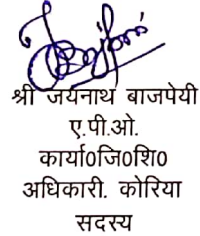 श्री जयनाथ बाजपेयी
ए.पी.ओ.
कार्या0जि0शि0
अधिकारी. कोरिया
सदस्य